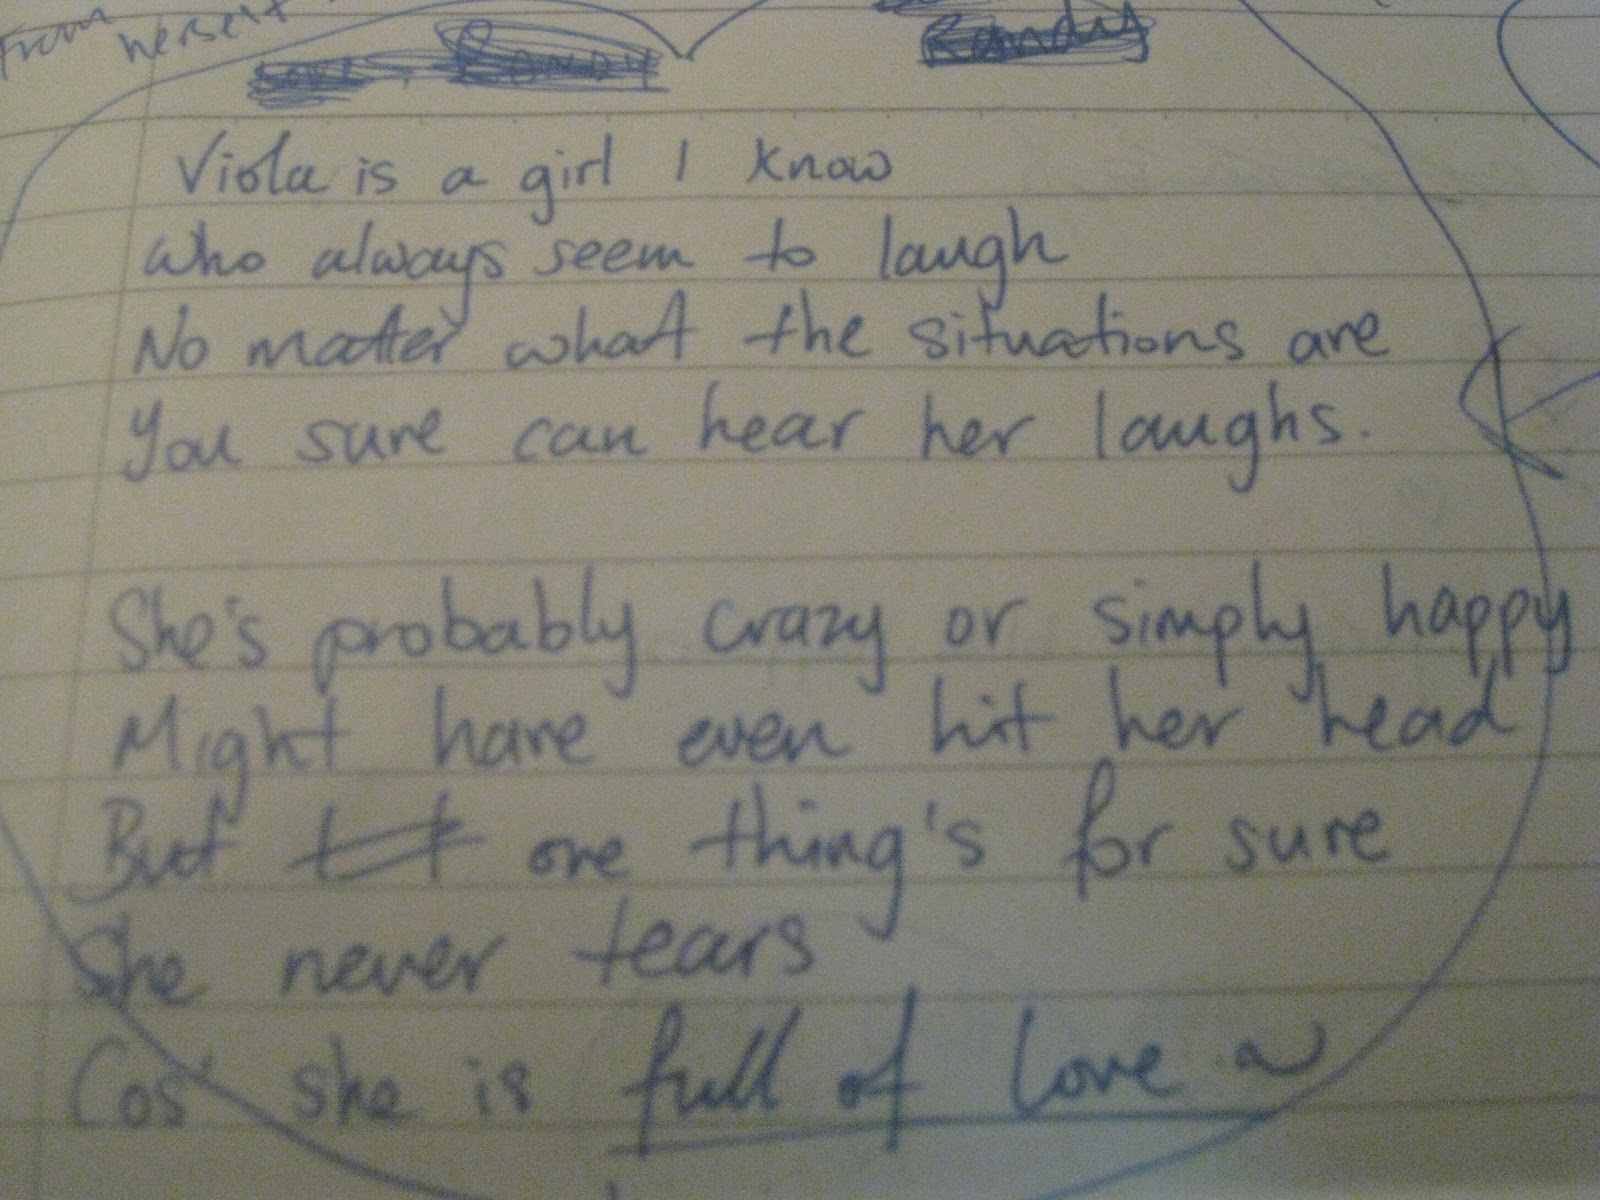 From herself
Randy
Randy
Viola is a girl I know
who always seem to laugh
No matter what the situations are
You sure can hear her laughs.
She's probably crazy or simply happy
Might have even hit her head
But one thing's for sure
She never tears
Cos' she is full of love ~